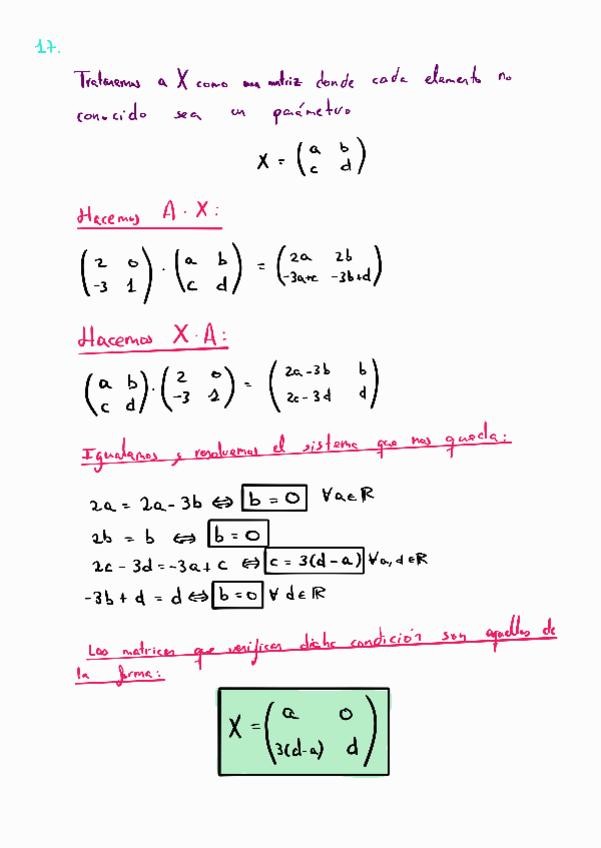 17.
Trataremos a X como una matriz donde cada elemento no
conocido sea un parámetro
X = (a b
c d)
Hacemos A · X:
(2 0
-3 1) · (a b
c d) = (2a 2b
-3a+c -3b+d)
Hacemos X · A:
(a b
c d) · (2 0
-3 1) = (2a-3b b
2c-3d d)
Igualamos y resolvemos el sistema que nos queda:
2a = 2a - 3b ⇔ b = 0 ∀a∈ℝ
2b = b ⇔ b = 0
2c - 3d = -3a + c ⇔ c = 3(d-a) ∀a,d∈ℝ
-3b + d = d ⇔ b = 0 ∀d∈ℝ
Las matrices que verifican dicha condición son aquellas de
la forma:
X = (a 0
3(d-a) d)